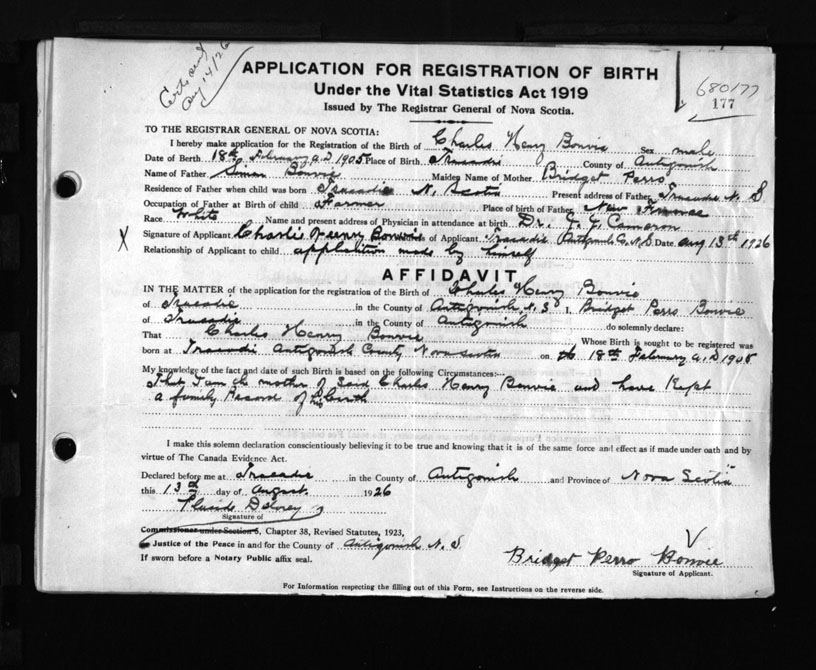 Cert. send
Aug 14/26
APPLICATION FOR REGISTRATION OF BIRTH
680177
Under the Vital Statistics Act 1919
177
Issued by The Registrar General of Nova Scotia.
TO THE REGISTRAR GENERAL OF NOVA SCOTIA:
I hereby make application for the Registration of the Birth of Charles Henry Bonvie Sex male
Date of Birth 18th February A.D 1905 Place of Birth Tracadie County of Antigonish
Name of Father Simon Bonvie Maiden Name of Mother Bridget Perro
Residence of Father when child was born Tracadie N. Scotia Present address of Father Tracadie N. S
Occupation of Father at Birth of child Farmer Place of birth of Father New
Race White Name and present address of Physician in attendance at birth Dr. Cameron
X Signature of Applicant Charlie Henry Bonvie of Applicant Tracadie Antigonish Co N.S. Date Aug 13th 1926
Relationship of Applicant to child application made by himself
AFFIDAVIT
IN THE MATTER of the application for the registration of the Birth of Charles Henry Bonvie
of Tracadie in the County of Antigonish, N.S I, Bridget Perro Bonvie
of Tracadie in the County of Antigonish do solemnly declare:
That Charles Henry Bonvie Whose Birth is sought to be registered was
born at Tracadie Antigonish County Nova Scotia on the 18th February A.D 1905
My knowledge of the fact and date of such Birth is based on the following Circumstances:--
That I am the mother of Said Charles Henry Bonvie and have Kept
a family Record of his birth
I make this solemn declaration conscientiously believing it to be true and knowing that it is of the same force and effect as if made under oath and by
virtue of The Canada Evidence Act.
Declared before me at Tracadie in the County of Antigonish and Province of Nova Scotia
this 13th day of August 1926
Placide Delorey
Signature of
Commissioner under Section 6, Chapter 38, Revised Statutes, 1923,
Justice of the Peace in and for the County of Antigonish N. S.
If sworn before a Notary Public affix seal.
Bridget Perro Bonvie
Signature of Applicant.
For Information respecting the filling out of this Form, see Instructions on the reverse side.